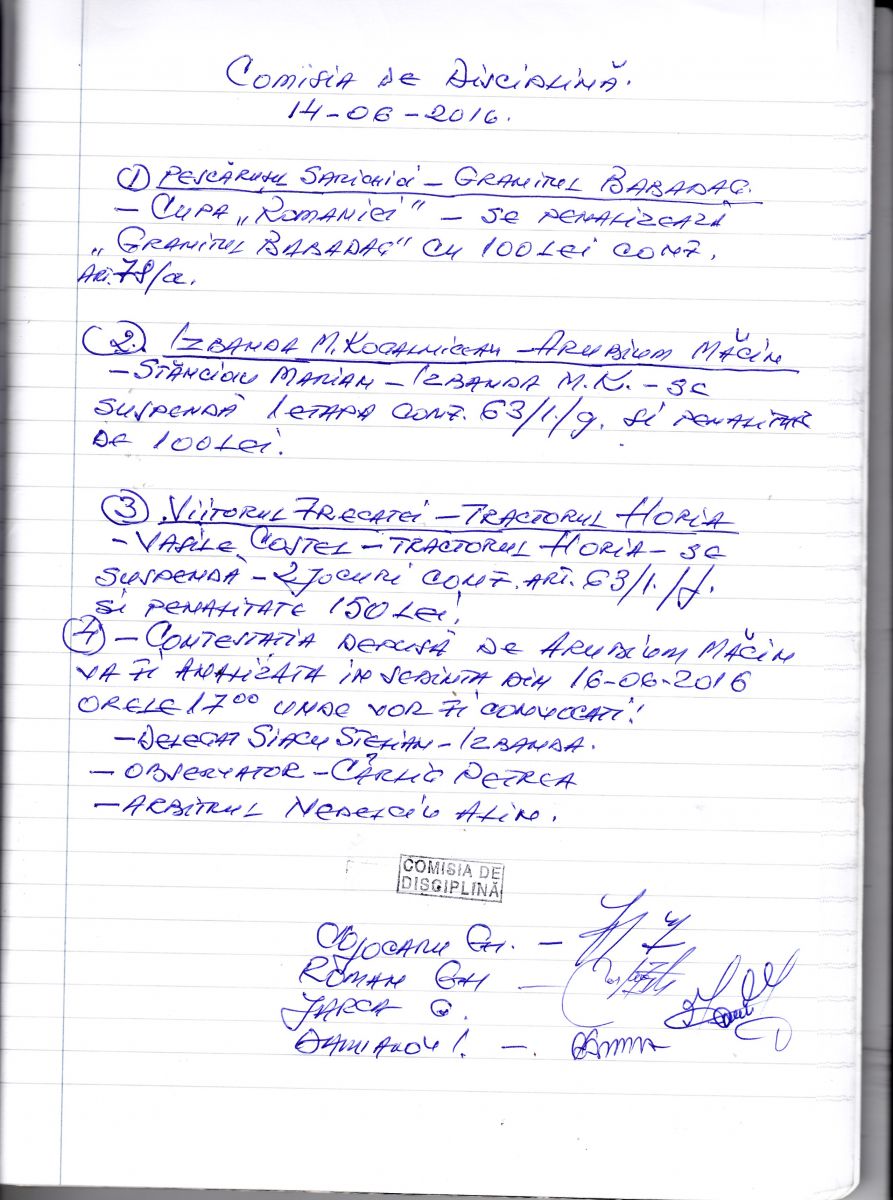 COMISIA DE DISCIPLINĂ.
14-06-2016.
① PESCĂRUȘUL SARICHIOI – GRANITUL BABADAG.
– CUPA „ROMANIEI" – SE PENALIZEAZĂ
„GRANITUL BABADAG" CU 100 LEI CONF.
ART. 78/a.
② IZBANDA M. KOGALNICEAN – ARUBIUM MĂCIN
– STĂNCIOU MARIAN – IZBANDA M.K. – SE
SUSPENDĂ 1 ETAPA CONF. 63/1./g. SI PENALITATE
DE 100 LEI.
③ VIITORUL FRECATEI – TRACTORUL HORIA
– VASILE COSTEL – TRACTORUL HORIA – SE
SUSPENDĂ – 2 JOCURI CONF. ART. 63/1./f.
SI PENALITATE 150 LEI!
④ – CONTESTATIA DEPUSĂ DE ARUBIUM MĂCIN
VA FI ANALIZATA IN SEDINTA DIN 16-06-2016
ORELE 17⁰⁰ UNDE VOR FI CONVOCATI!
– DELEGAT SIACU STEFAN – IZBANDA.
– OBSERVATOR – CÂRLIG PETREA
– ARBITRUL NEDELCIU ALIN.
COMISIA DE
DISCIPLINĂ
COJOCARU GH. –
ROMAN GH –
JARCA G.
DAMIANOV I. –.